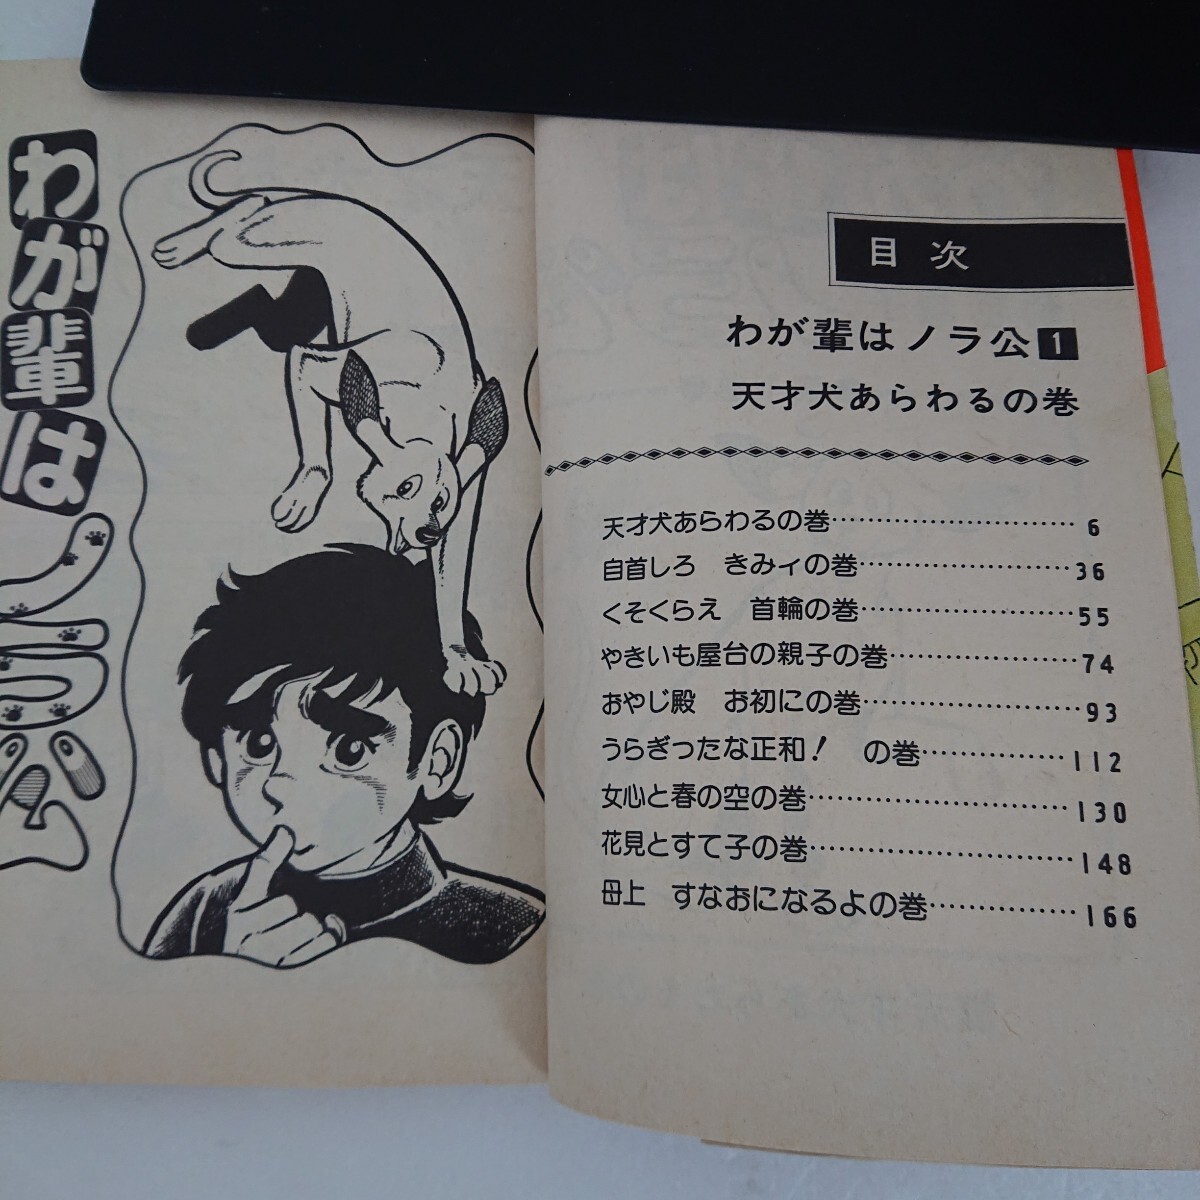 わが輩はノラ公
目次
わが輩はノラ公1
天才犬あらわるの巻
天才犬あらわるの巻…………………………6
自首しろ　きみィの巻……………………36
くそくらえ　首輪の巻……………………55
やきいも屋台の親子の巻…………………74
おやじ殿　お初にの巻……………………93
うらぎったな正和！　の巻……………112
女心と春の空の巻…………………………130
花見とすて子の巻…………………………148
母上　すなおになるよの巻……………166